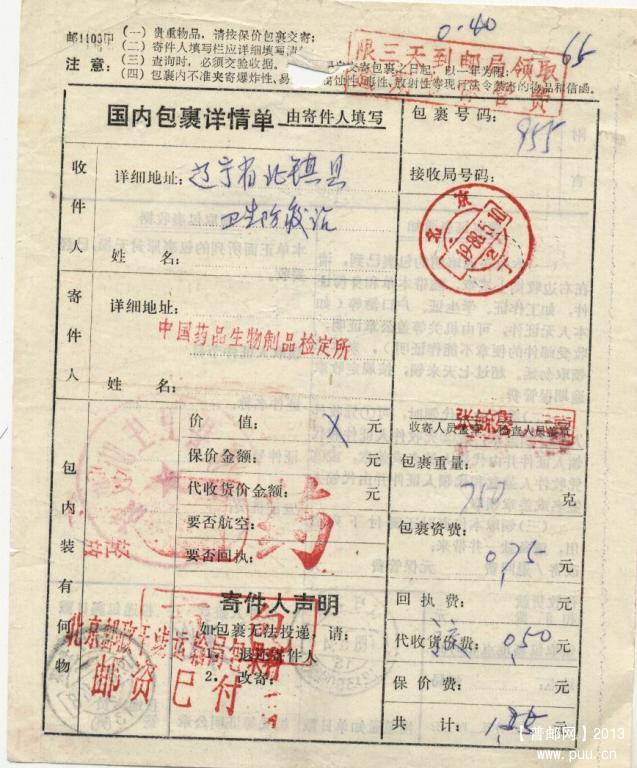 0.40
65
邮1103甲 (一) 贵重物品，请按保价包裹交寄；
(二) 寄件人填写栏应详细填写清
注意：(三) 查询时，必须交验收据。 交寄包裹之日起，以一年为限；
(四) 包裹内不准夹寄爆炸性、易 腐蚀性、毒性、放射性等现行法令禁寄的物品和信函。
限三天到邮局领取
费
国内包裹详情单 由寄件人填写
包裹号码：
955
收件人
详细地址：辽宁省北镇县
卫生防疫站
姓 名：
接收局号码：
北京
1988.5.10
2
丁
寄件人
详细地址：
中国药品生物制品检定所
姓 名：
包内装有何物
价 值： X 元
保价金额： 元
代收货价金额： 元
要否航空：
要否回执：
收寄人员盖章
检查人员盖章
包裹重量：
750 克
包裹资费：
0.55 元
回执费： 元
代收货价费： 0.50 元
保价费： 元
共 计： 元
寄件人声明
如包裹无法投递，请：
1. 退还寄件人
2. 改寄：
邮资已付
【普邮网】2013
www.puu.cn